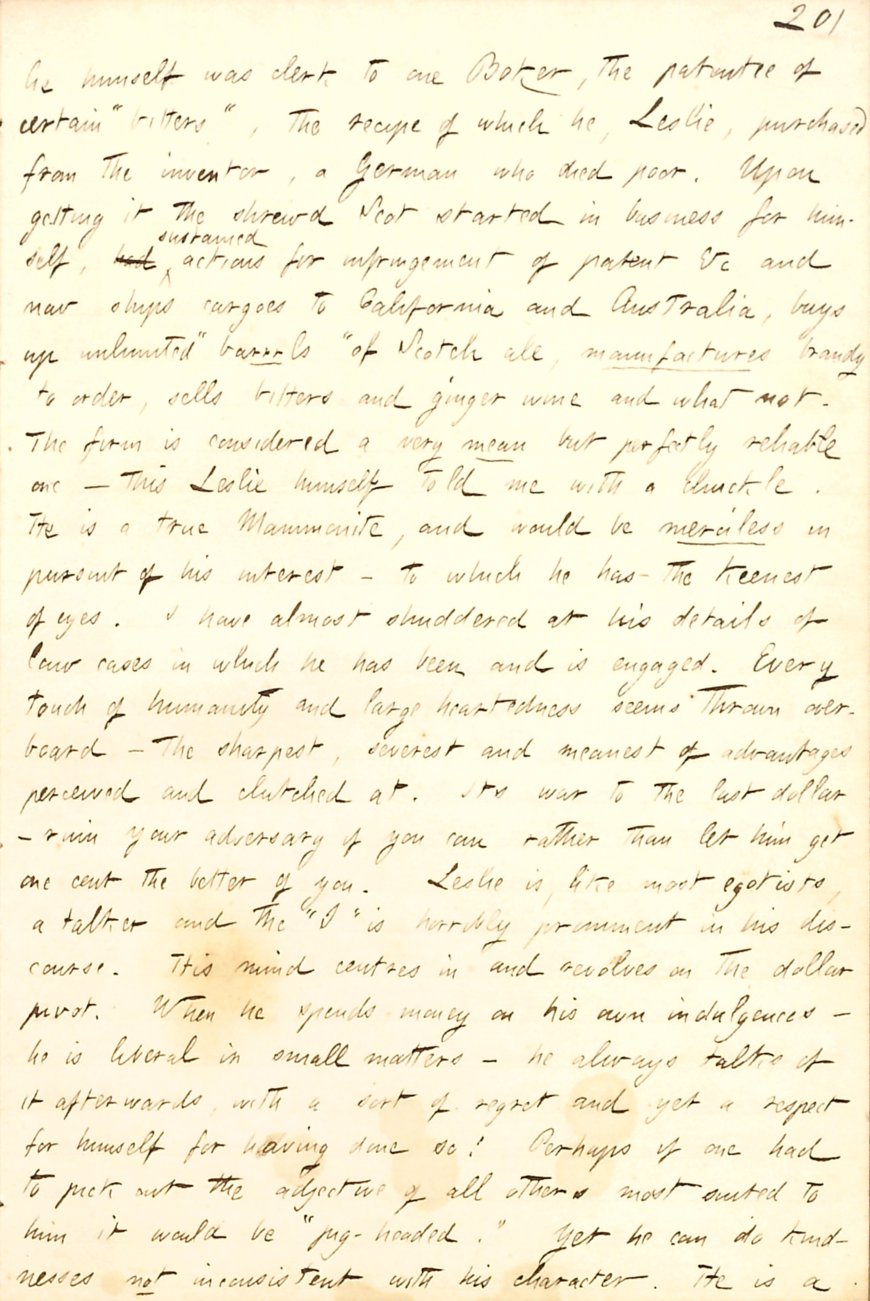 201
he himself was clerk to one Boker, the patentee of
certain "bitters", the recipe of which he, Leslie, purchased
from the inventor, a German who died poor. Upon
getting it the shrewd Scot started in business for him-
sustained
self, had actions for infringement of patent &c and
now ships cargoes to California and Australia, buys
up unlimited "barrrls" of Scotch ale, manufactures brandy
to order, sells bitters and ginger wine and what not.
The firm is considered a very mean but perfectly reliable
one — this Leslie himself told me with a chuckle.
He is a true Mammonite, and would be merciless in
pursuit of his interest — to which he has the keenest
of eyes. I have almost shuddered at his details of
law cases in which he has been and is engaged. Every
touch of humanity and large heartedness seems thrown over-
board — the sharpest, severest and meanest of advantages
perceived and clutched at. Its war to the last dollar
— ruin your adversary if you can rather than let him get
one cent the better of you. Leslie is, like most egotists,
a talker and the "I" is horribly prominent in his dis-
course. His mind centres in and revolves on the dollar
pivot. When he spends money on his own indulgences —
he is liberal in small matters — he always talks of
it afterwards, with a sort of regret and yet a respect
for himself for having done so! Perhaps if one had
to pick out the adjective of all others most suited to
him it would be "pig-headed." Yet he can do kind-
nesses not inconsistent with his character. He is a